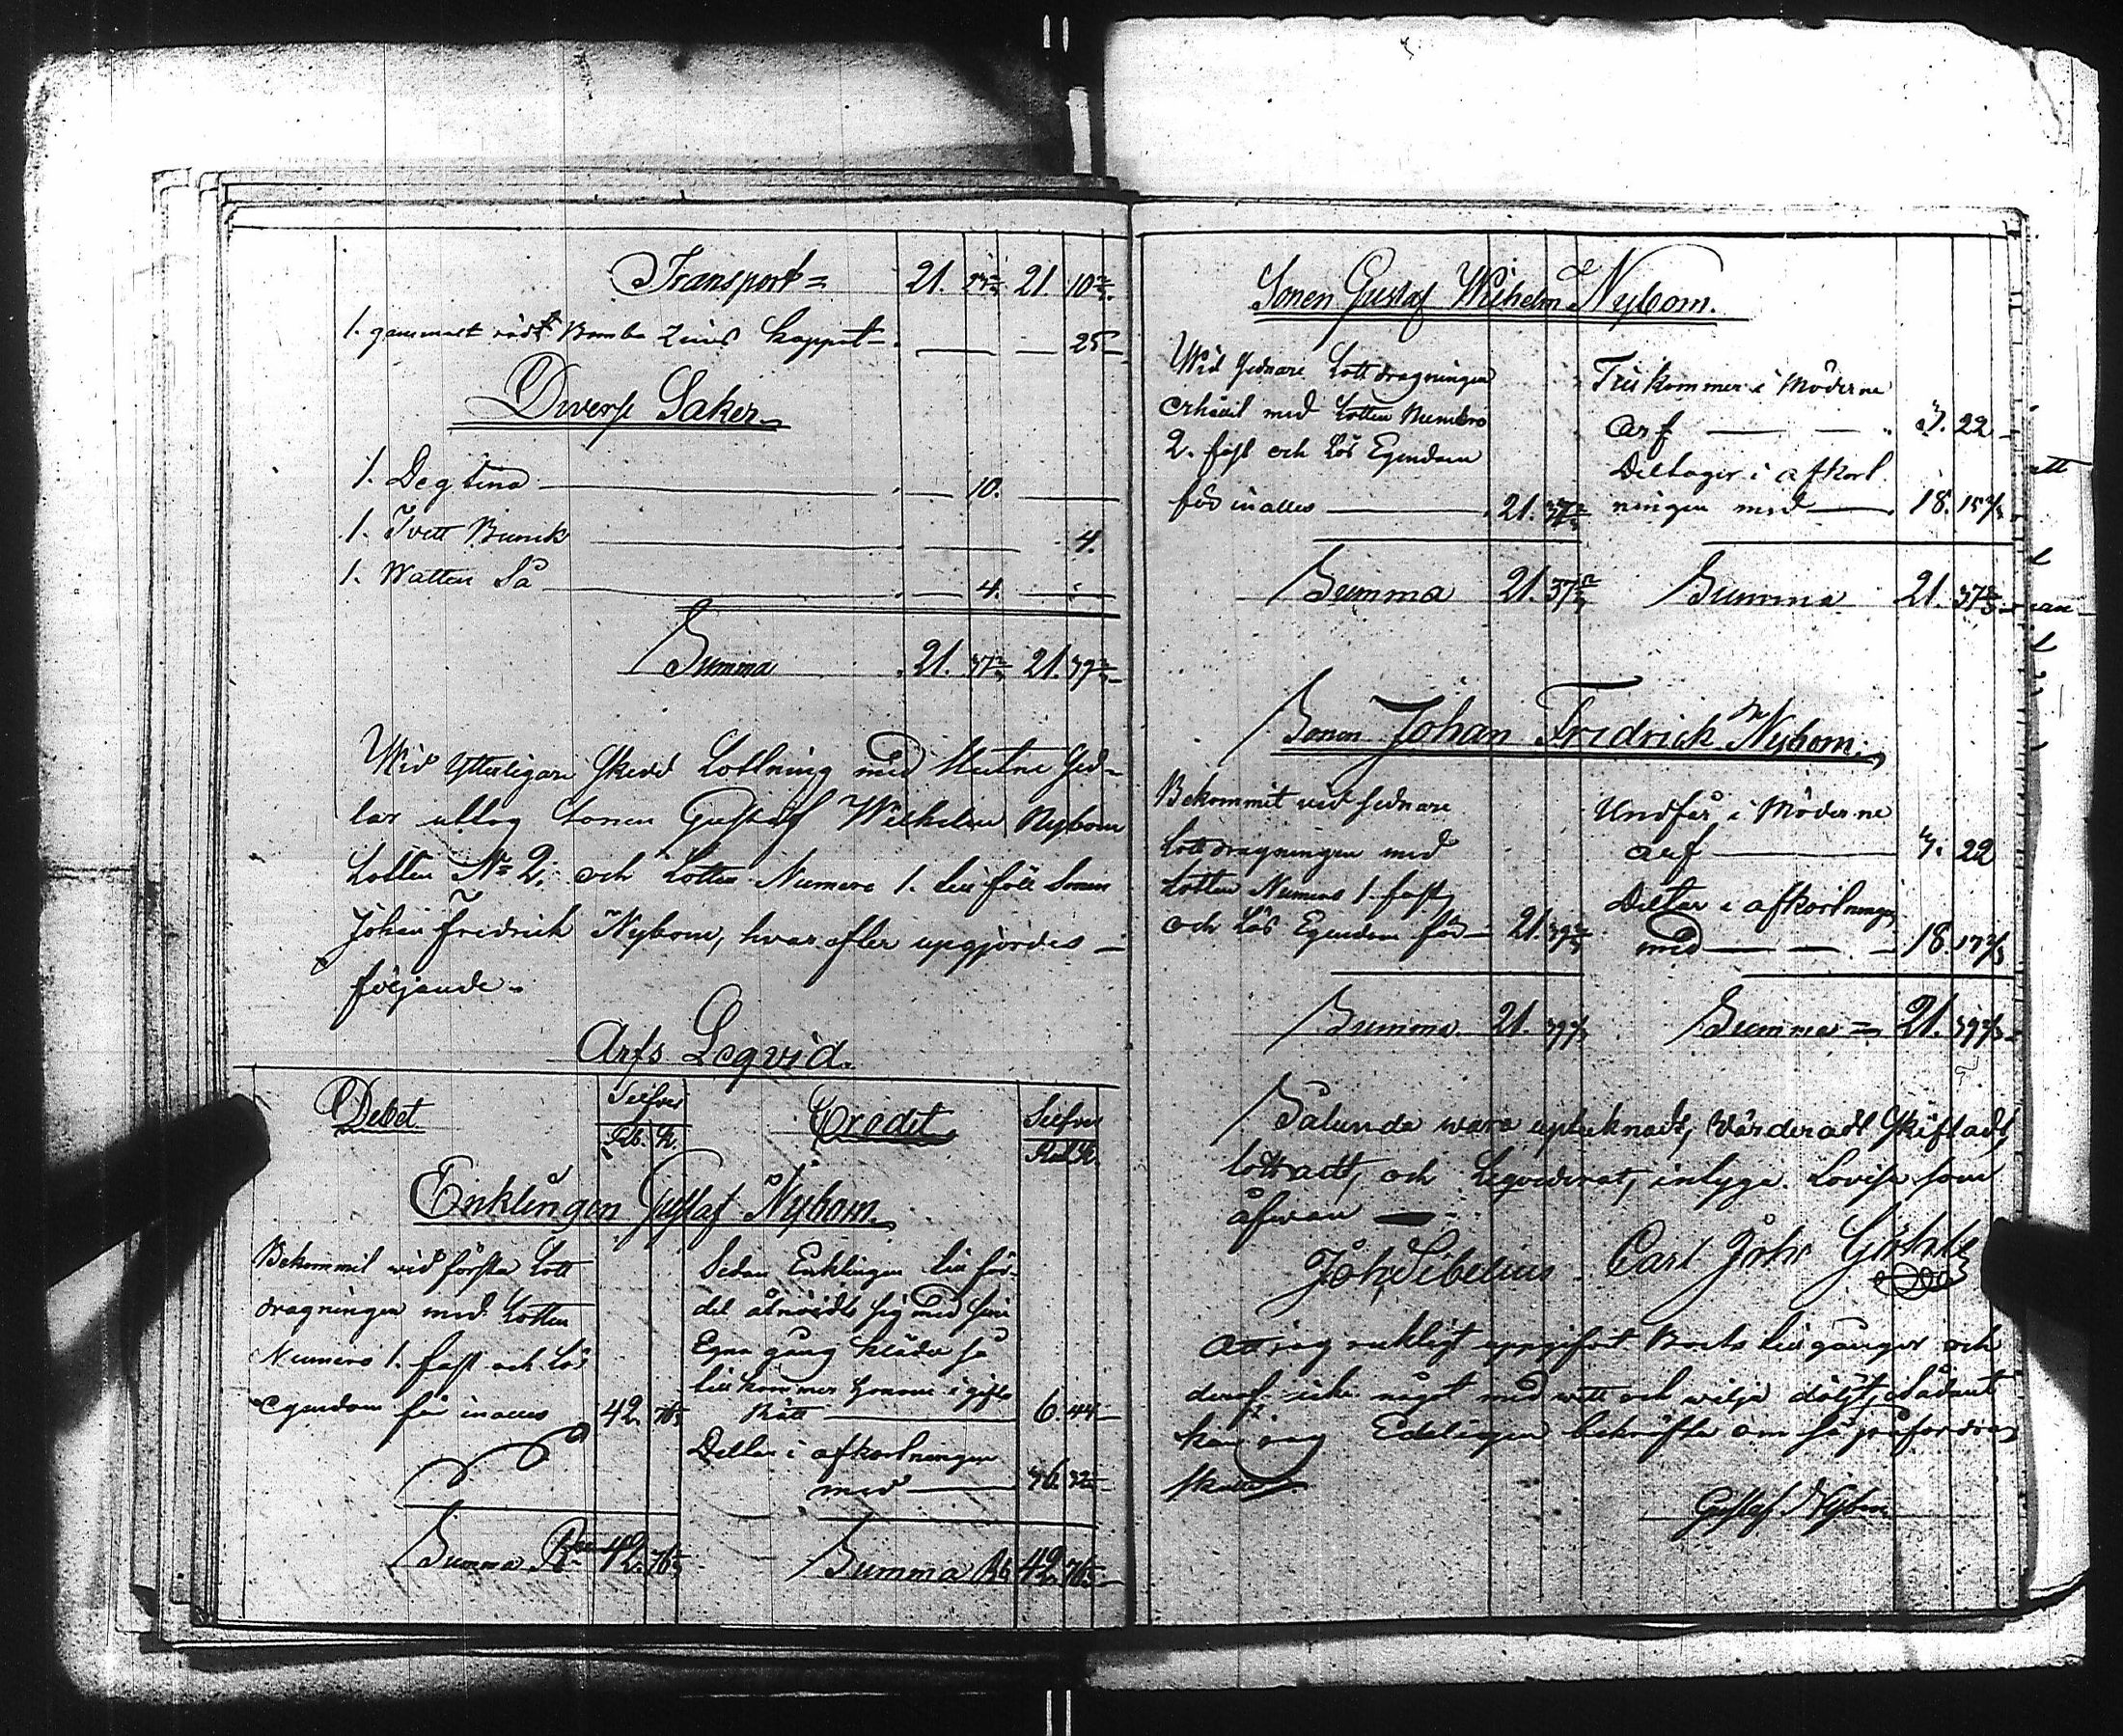 Transport = 21. 21. 10 2/3.
1. gammalt rödt Bomba kappot — 25 —
Diverse Saker
1. Degtina — 10. —
1. Tvett Bunk — 4.
1. Watten Så — 4. —
Summa 21. 37 2/3 21. 39 2/3 —
Wid ytterligare skedd Lottning med slutne Sed-
lar uttog Sonen Gustaf Wilhelm Nybom
Lotten No 2. och Lotten Numero 1. till föll Sonen
Johan Fredrick Nybom, hvar efter upgjordes —
följande.
Arfs Leqvid.
Debet Silfver Rub. K. Credit Silfver Rub K.
Enklingen Gustaf Nybom.
Bekommit vid första Lott
dragningen med Lotten
Numero 1. fast och Lös
egendom för inalles 42. 76
Summa 42. 76
Sedan Enklingen till för-
del åtnöidt sig med sine
Egna gång kläder så
tillkommer honom i gifto
Rätt — 6. 44 —
Deltar i afkortningen
med — 36. 32 —
Summa Rb 42. 76 —
Sonen Gustaf Wilhelm Nybom.
Wid sednare Lottdragningen
erhållit med Lotten Numero
2. fast och Lös Egendom
för inalles — 21. 37 2/3
Summa 21. 37 2/3
Tillkommer i Möderne
arf — 3. 22 —
Deltager i afkort
ningen med — 18. 15 2/3
Summa 21. 37 2/3
Sonen Johan Fredrick Nybom.
Bekommit vid sednare
Lottdragningen med
Lotten Numero 1. fast
och Lös Egendom för — 21. 39 2/3
Summa 21. 39 2/3
Undfår i Möderne
arf — 3. 22
Deltar i afkortningen
med — 18. 17 2/3
Summa = 21. 39 2/3 —
Sålunda vara uptecknadt, Värderadt Skiftadt,
lottradt, och Leqviderat, intyga. Lovisa som
åfwan —
Joh. Sibelius. Carl Joh
Att jag ricktigt uppgifvit Boets tillgångar och
deraf icke något med vett och vilja döljt, sådant
kan jag Edeligen bekräfta om så påfordras
skulle
Gustaf Nybom